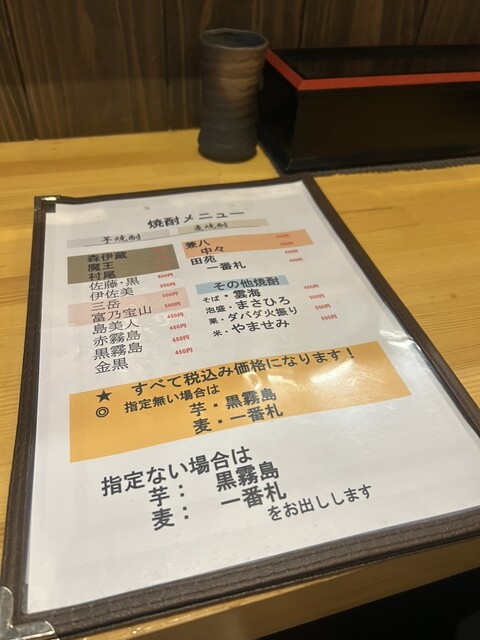 焼酎メニュー
芋焼酎
森伊蔵
魔王
村尾
佐藤・黒
伊佐美
三岳
富乃宝山
島美人
赤霧島
黒霧島
金黒
800円
500円
500円
500円
450円
450円
450円
450円
麦焼酎
兼八
中々
田苑
一番札
その他焼酎
そば・雲海
泡盛・まさひろ
栗・ダバダ火振り
米・やませみ
400円
500円
500円
500円
★ すべて税込み価格になります!
◎ 指定無い場合は
芋・黒霧島
麦・一番札
指定ない場合は
芋: 黒霧島
麦: 一番札
をお出しします